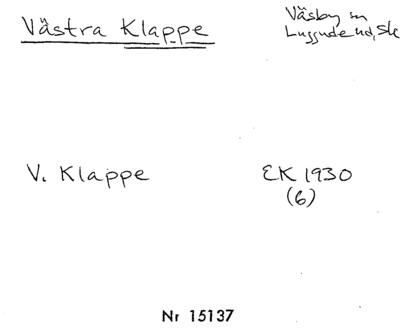 Västra Klappe
Väsby sn
Luggude hd, Sk
V. Klappe
EK 1930
(6)
Nr 15137